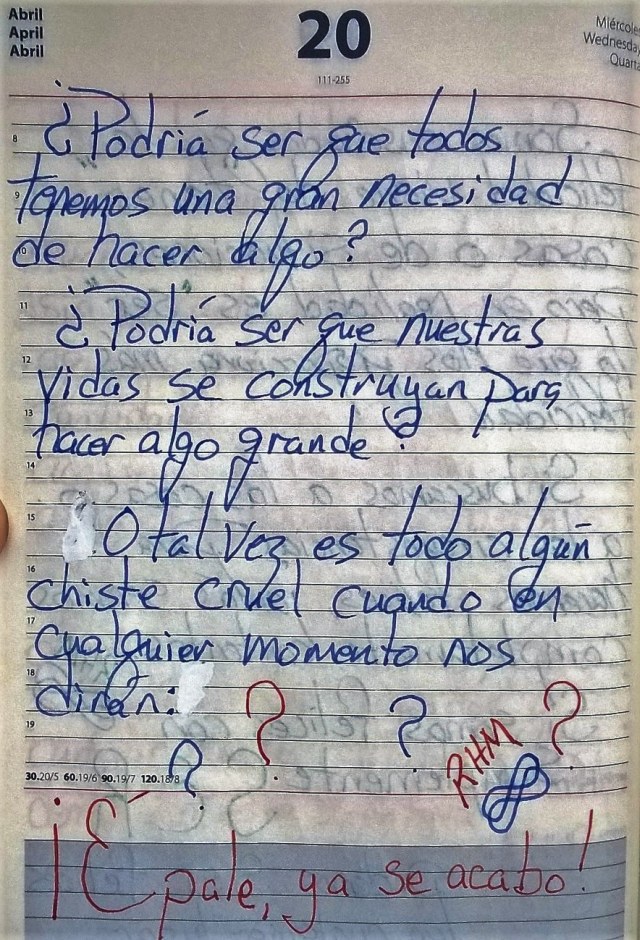 Abril
April
Abril
20
111-255
Miércoles
Wednesday
Quarta
8
¿Podriá ser que todos
9
tenemos una gran necesidad
10
de hacer algo?
11
¿Podriá ser que nuestras
12
vidas se construyan para
13
hacer algo grande?
14
15
O tal vez es todo algún
16
chiste cruel cuando en
17
cualquier momento nos
18
dirán:
19
? ? ? ?
RHM
30.20/5 60.19/6 90.19/7 120.18/8
¡Épale, ya se acabo!